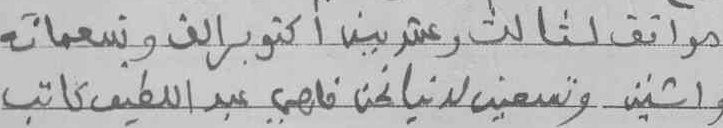 موافق لثالث وعشرين أكتوبر الف وتسعمائه
واثنين وتسعين لدينا نحن فاهمي عبد اللطيف كاتب